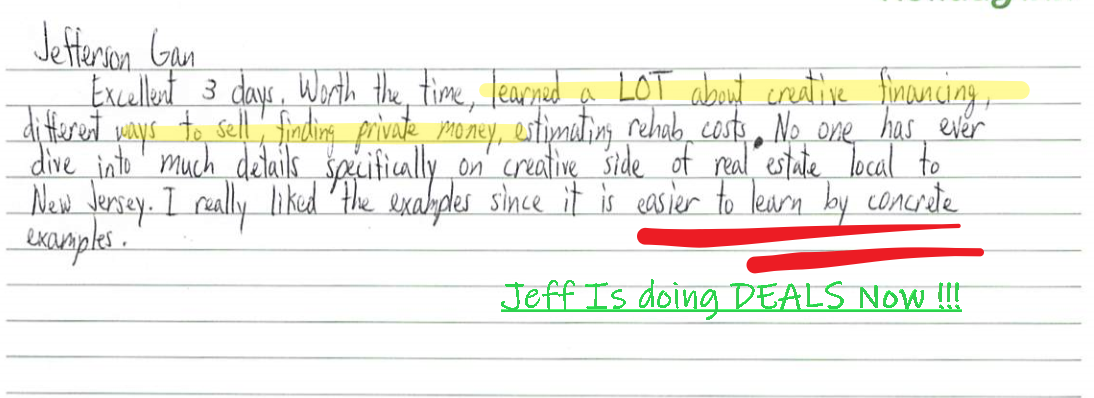 Jefferson Gan
Excellent 3 days. Worth the time, learned a LOT about creative financing,
different ways to sell, finding private money, estimating rehab costs. No one has ever
dive into much details specifically on creative side of real estate local to
New Jersey. I really liked the examples since it is easier to learn by concrete
examples.
Jeff Is doing DEALS Now !!!